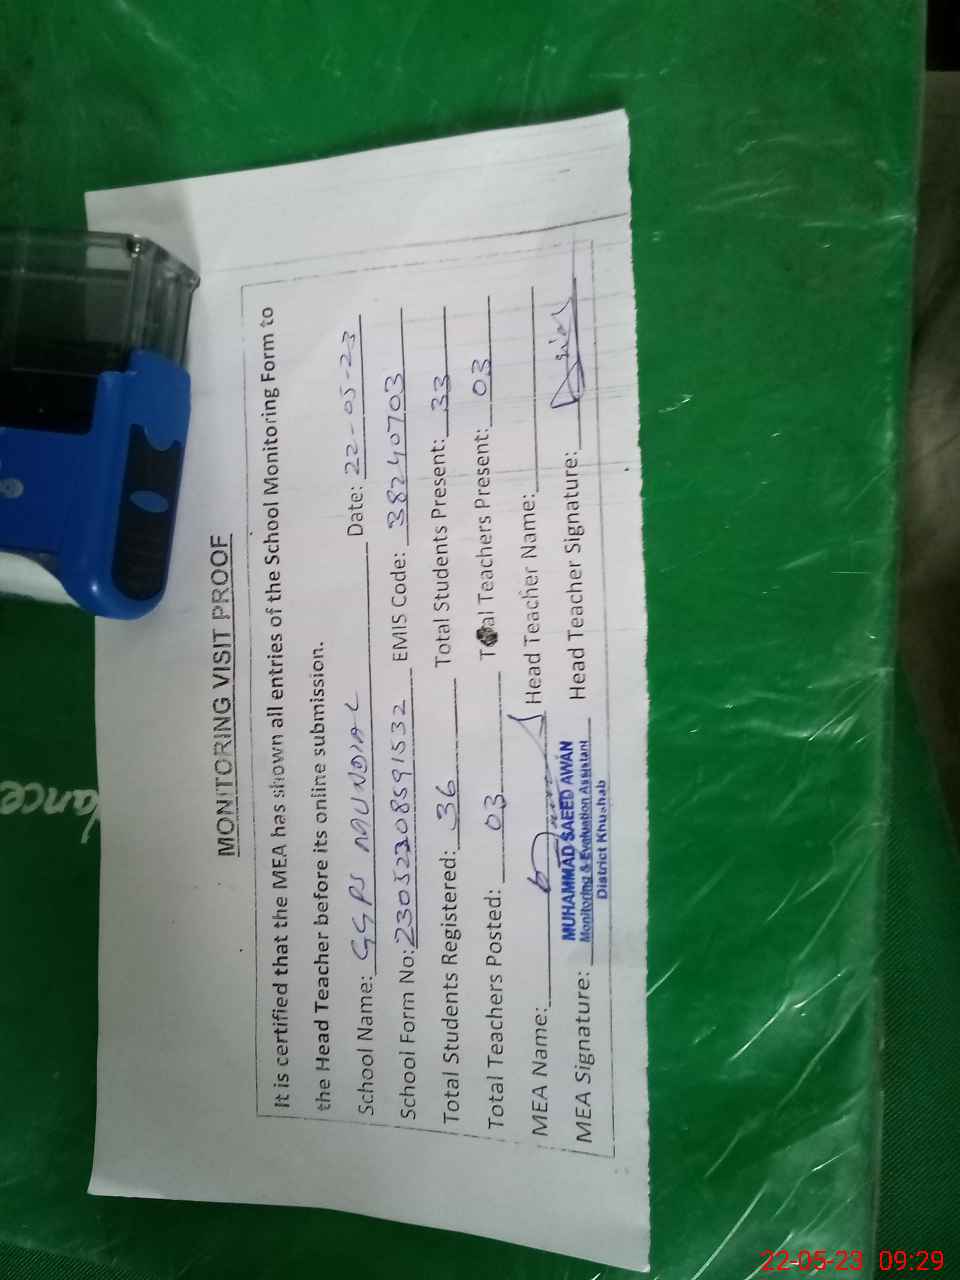 MONITORING VISIT PROOF
It is certified that the MEA has shown all entries of the School Monitoring Form to
the Head Teacher before its online submission.
School Name: GGPS MUNDIAL Date: 22-05-23
School Form No: 230522308591532 EMIS Code: 38240703
Total Students Registered: 36 Total Students Present: 33
Total Teachers Posted: 03 Total Teachers Present: 03
MEA Name: Head Teacher Name:
MEA Signature: Head Teacher Signature:
MUHAMMAD SAEED AWAN
Monitoring & Evaluation Assistant
District Khushab
22-05-23 09:29